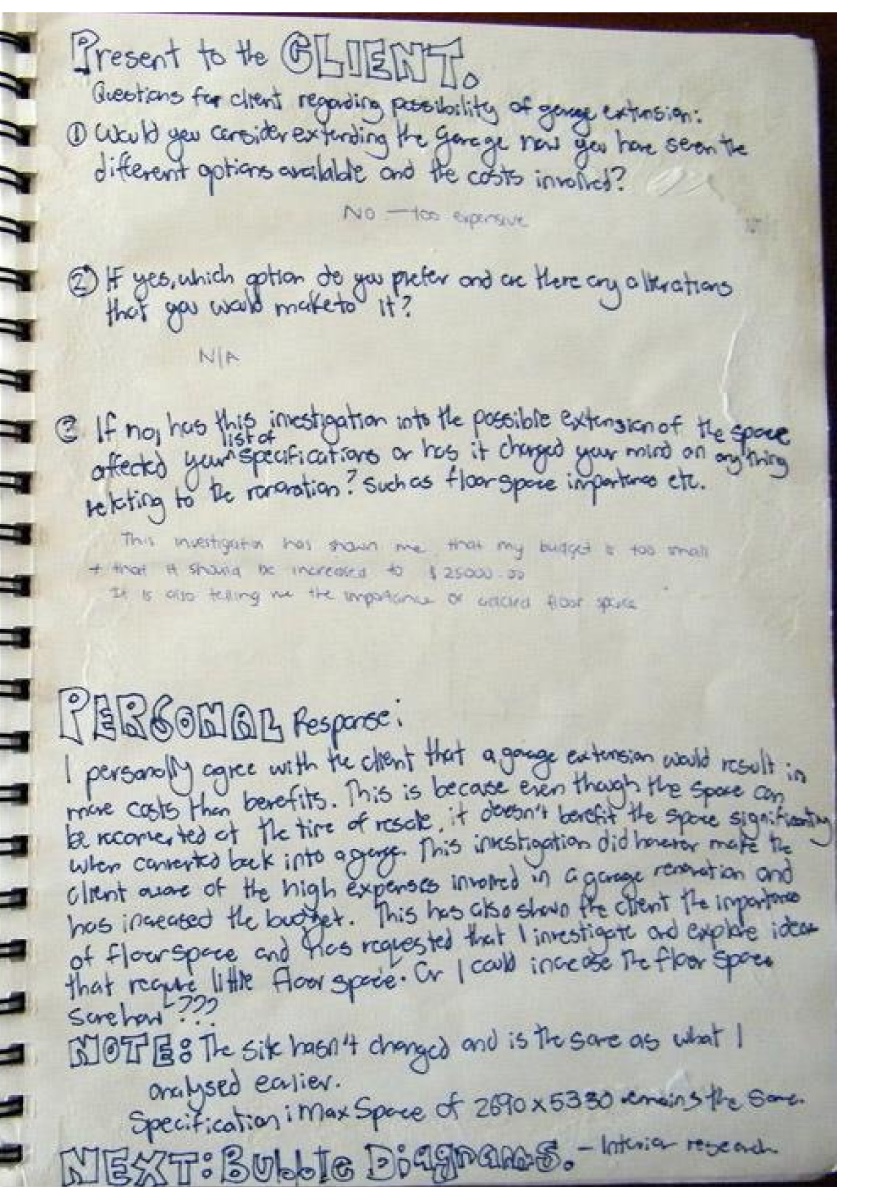 Present to the CLIENT.
Questions for client regarding possibility of garage extension:
① Would you consider extending the Garage now you have seen the
different options available and the costs involved?
No — too expensive
② If yes, which option do you prefer and are there any alterations
that you would make to it?
N/A
③ If no, has this investigation into the possible extension of the space
affected your ^list of specifications or has it changed your mind on anything
relating to the renovation? Such as floor space importance etc.
This investigation has shown me that my budget is too small
+ that it should be increased to $25000.00
It is also telling me the importance of added floor space
PERSONAL Response:
I personally agree with the client that a garage extension would result in
more costs than benefits. This is because even though the space can
be reconverted at the time of resale, it doesn't benefit the space significantly
when converted back into a garage. This investigation did however make the
client aware of the high expenses involved in a garage renovation and
has increased the budget. This has also shown the client the importance
of floorspace and has requested that I investigate and explore ideas
that require little floor space. Or I could increase the floor space
somehow???
NOTE: The site hasn't changed and is the same as what I
analysed earlier.
Specification: Max Space of 2690 x 5330 remains the same.
NEXT: Bubble Diagrams. - Interior research